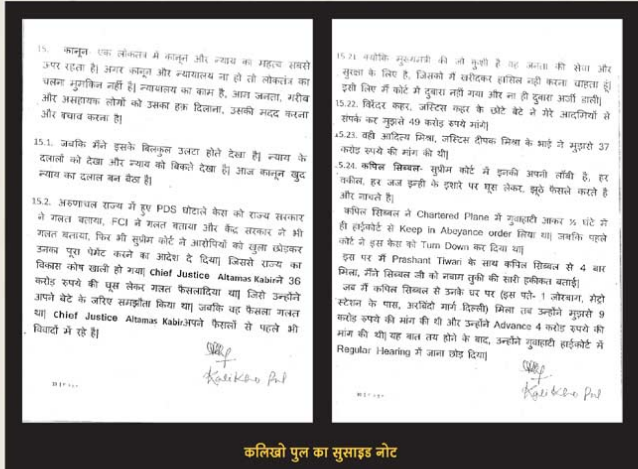 15. कानून- एक लोकतंत्र में कानून और न्याय का महत्व सबसे
ऊपर रहता है| अगर कानून और न्यायालय ना हो तो लोकतंत्र का
चलना मुमकिन नहीं है| न्यायालय का काम है, आम जनता, गरीब
और असहायक लोगों को उसका हक़ दिलाना, उसकी मदद करना
और बचाव करना है|
15.1. जबकि मैंने इसके बिलकुल उलटा होते देखा है| न्याय के
दलालों को देखा और न्याय को बिकते देखा है| आज कानून खुद
न्याय का दलाल बन बैठा है|
15.2. अरुणाचल राज्य में हुए PDS घोटाले केस को राज्य सरकार
ने गलत बताया, FCI ने गलत बताया और केंद्र सरकार ने भी
गलत बताया, फिर भी सुप्रीम कोर्ट ने आरोपियों को खुला छोड़कर
उनका पूरा पेमेंट करने का आदेश दे दिया| जिससे राज्य का
विकास कोष खाली हो गया| Chief Justice Altamas Kabirने 36
करोड़ रुपये की घूस लेकर गलत फैसलादिया था| जिसे उन्होंने
अपने बेटे के जरिए समझौता किया था| जबकि वह फैसला गलत
था| Chief Justice Altamas Kabirअपने फ़ैसलों से पहले भी
विवादों में रहे है|
Kalikho Pul
15.21 क्योंकि मुख्यमंत्री की जो कुर्सी है वह जनता की सेवा और
सुरक्षा के लिए है, जिसको मैं खरीदकर हासिल नहीं करना चाहता हूँ|
इसी लिए मैं कोर्ट में दुबारा नहीं गया और ना ही दुबारा अर्जी डाली|
15.22. विरेंदर कहर, जस्टिस कहर के छोटे बेटे ने मेरे आदमियों से
संपर्क कर मुझसे 49 करोड़ रुपये मांगे|
15.23. वही आदित्य मिश्रा, जस्टिस दीपक मिश्रा के भाई ने मुझसे 37
करोड़ रुपये की मांग की थी|
15.24. कपिल सिब्बल- सुप्रीम कोर्ट में इनकी अपनी लॉबी है, हर
वकील, हर जज इन्ही के इशारे पर घूस लेकर, झूठे फैसले करते है
और नाचते है|
कपिल सिब्बल ने Chartered Plane में गुवाहाटी आकर ½ घंटे में
ही हाईकोर्ट से Keep in Abeyance order लिया था| जबकि पहले
कोर्ट ने इस केस को Turn Down कर दिया था|
इस पर मैं Prashant Tiwari के साथ कपिल सिब्बल से 4 बार
मिला, मैंने सिब्बल जी को नबाम तुकी की सारी हकीकत बताई|
जब मैं कपिल सिब्बल से उनके घर पर (इस पते- 1 जोरबाग, मेट्रो
स्टेशन के पास, अरबिंदो मार्ग दिल्ली) मिला तब उन्होंने मुझसे 9
करोड़ रुपये की मांग की थी और उन्होंने Advance 4 करोड़ रुपये की
मांग की थी| यह बात तय होने के बाद, उन्होंने गुवाहाटी हाईकोर्ट में
Regular Hearing में जाना छोड़ दिया|
Kalikho Pul
कलिखो पुल का सुसाइड नोट